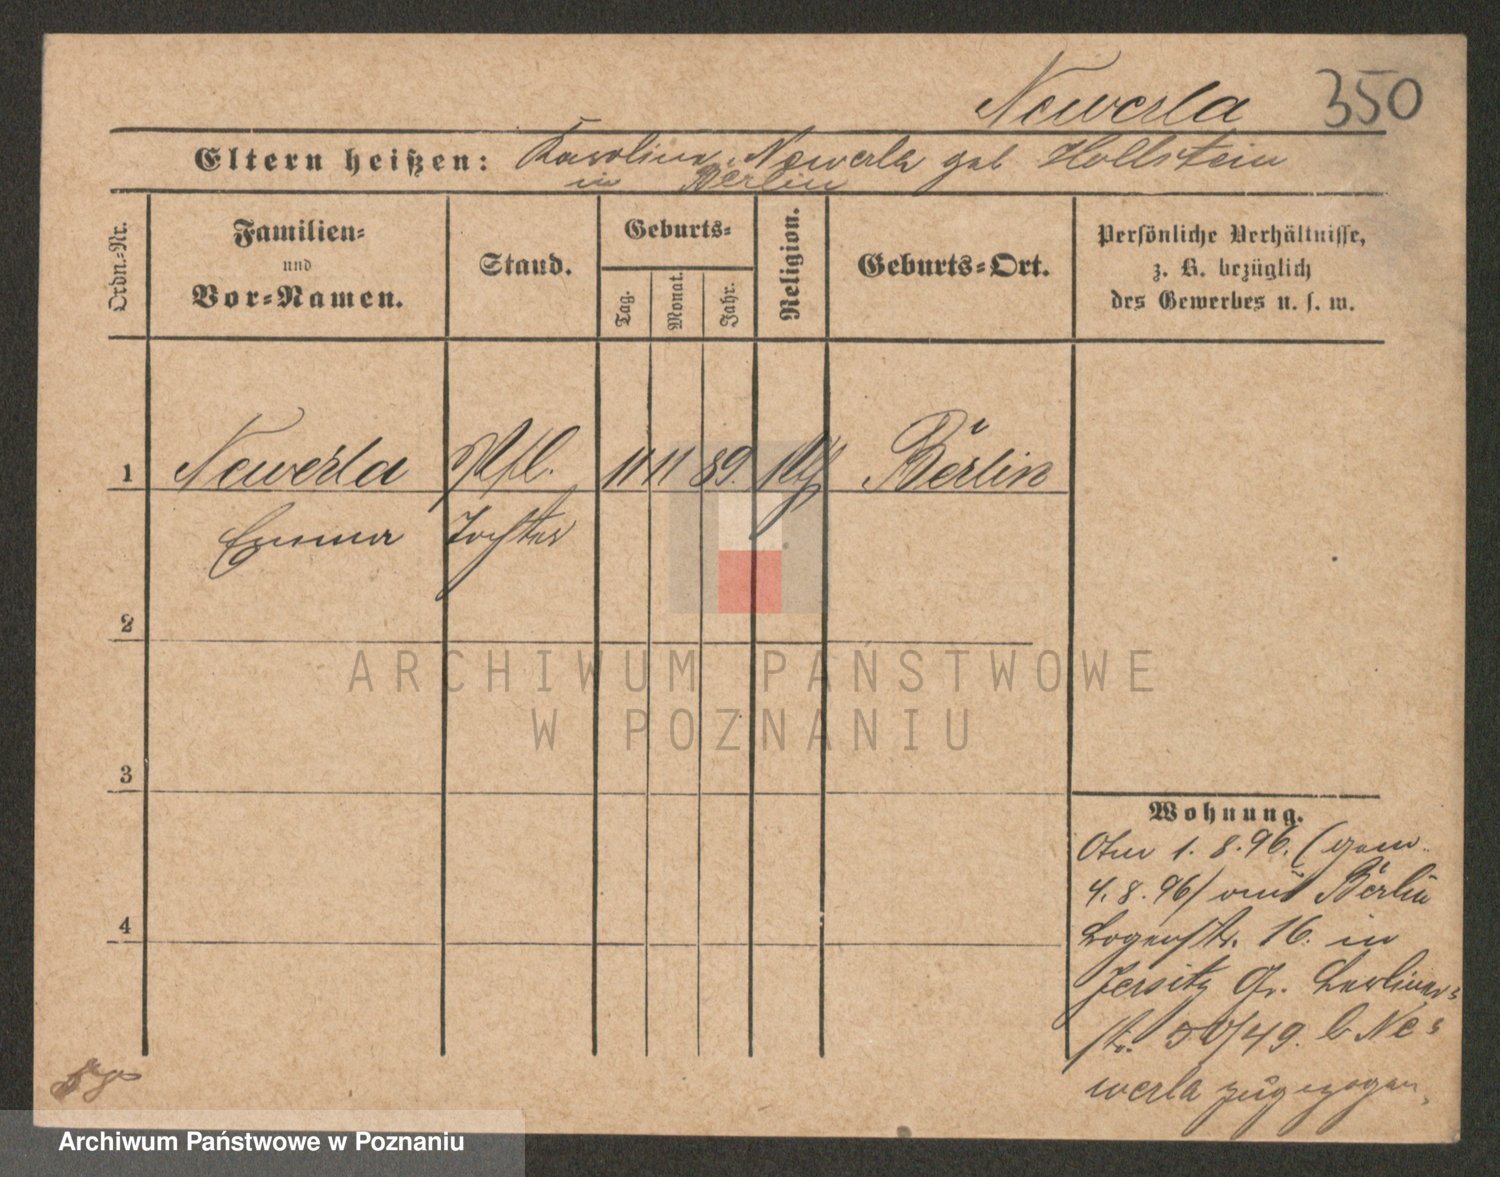 Newerla 350
Eltern heißen: Karoline Newerla geb Hollstein
in Berlin
Ordn.-Nr.
Familien-
und
Vor-Namen.
Stand.
Geburts-
Tag.
Monat.
Jahr.
Religion.
Geburts-Ort.
Persönliche Verhältnisse,
z. B. bezüglich
des Gewerbes u. s. w.
1 Newerla 11 11 89. Berlin
Emma Tochter
2
3
4
Wohnung.
Am 1. 8. 96. (gem.
4. 8. 96) aus Berlin
16. in
Jersitz Gr. Berliner-
str. 50/49. b Ne-
werla zugezogen.
ARCHIWUM PAŃSTWOWE
W POZNANIU
Archiwum Państwowe w Poznaniu